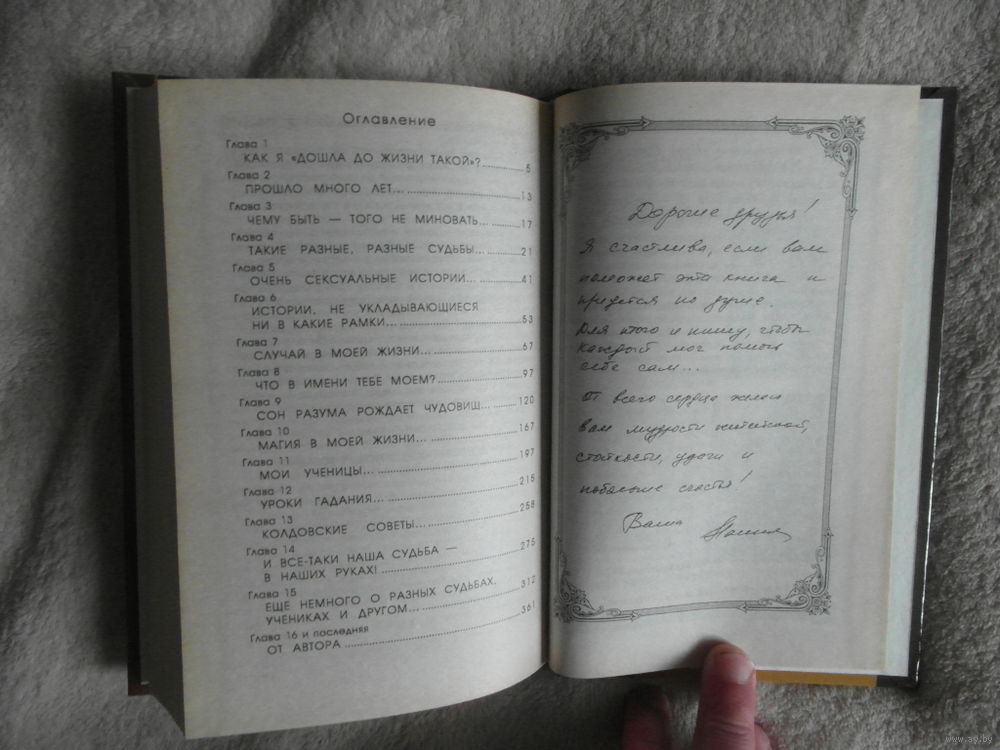 Оглавление
Глава 1
КАК Я «ДОШЛА ДО ЖИЗНИ ТАКОЙ»? 5
Глава 2
ПРОШЛО МНОГО ЛЕТ... 13
Глава 3
ЧЕМУ БЫТЬ — ТОГО НЕ МИНОВАТЬ... 17
Глава 4
ТАКИЕ РАЗНЫЕ, РАЗНЫЕ СУДЬБЫ... 21
Глава 5
ОЧЕНЬ СЕКСУАЛЬНЫЕ ИСТОРИИ... 41
Глава 6
ИСТОРИИ, НЕ УКЛАДЫВАЮЩИЕСЯ
НИ В КАКИЕ РАМКИ... 53
Глава 7
СЛУЧАЙ В МОЕЙ ЖИЗНИ... 67
Глава 8
ЧТО В ИМЕНИ ТЕБЕ МОЕМ? 97
Глава 9
СОН РАЗУМА РОЖДАЕТ ЧУДОВИЩ... 120
Глава 10
МАГИЯ В МОЕЙ ЖИЗНИ... 167
Глава 11
МОИ УЧЕНИЦЫ... 197
Глава 12
УРОКИ ГАДАНИЯ... 215
Глава 13
КОЛДОВСКИЕ СОВЕТЫ... 258
Глава 14
И ВСЕ-ТАКИ НАША СУДЬБА —
В НАШИХ РУКАХ! 275
Глава 15
ЕЩЕ НЕМНОГО О РАЗНЫХ СУДЬБАХ,
УЧЕНИКАХ И ДРУГОМ... 312
Глава 16 и последняя
ОТ АВТОРА 361
Дорогие друзья!
Я счастлива, если вам
поможет эта книга и
придется по душе.
Для этого и пишу, чтобы
каждый мог помочь
себе сам...
От всего сердца желаю
вам мудрости житейской,
стойкости, удачи и
побольше счастья!
Ваша
www.ay.by